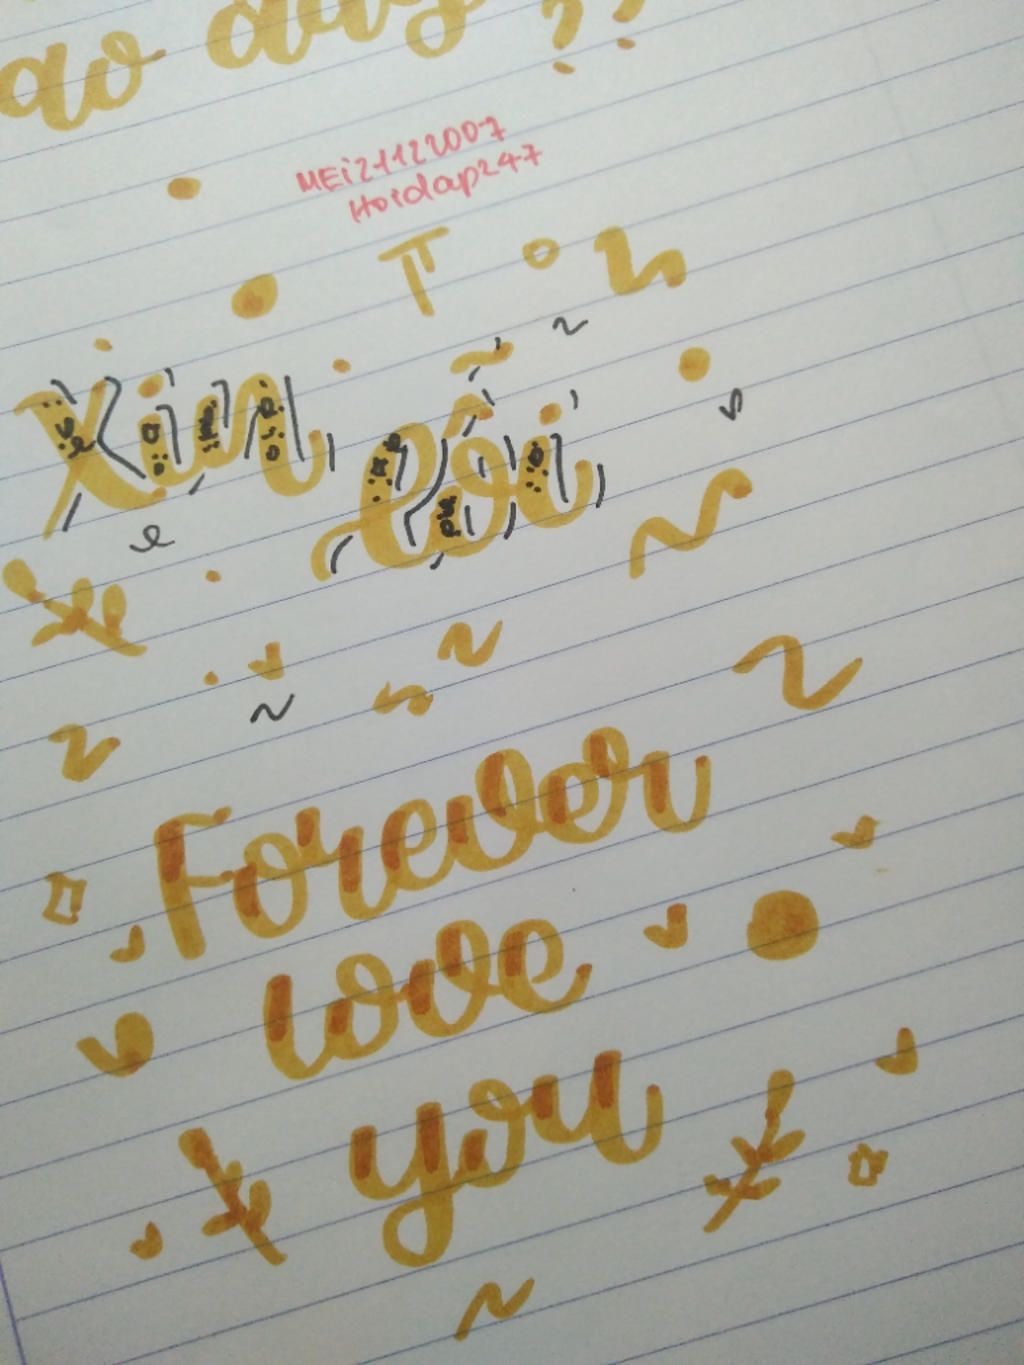 ao đây ??
MEi21122007
Hoidap247
Xin lỗi
Forever
love
you